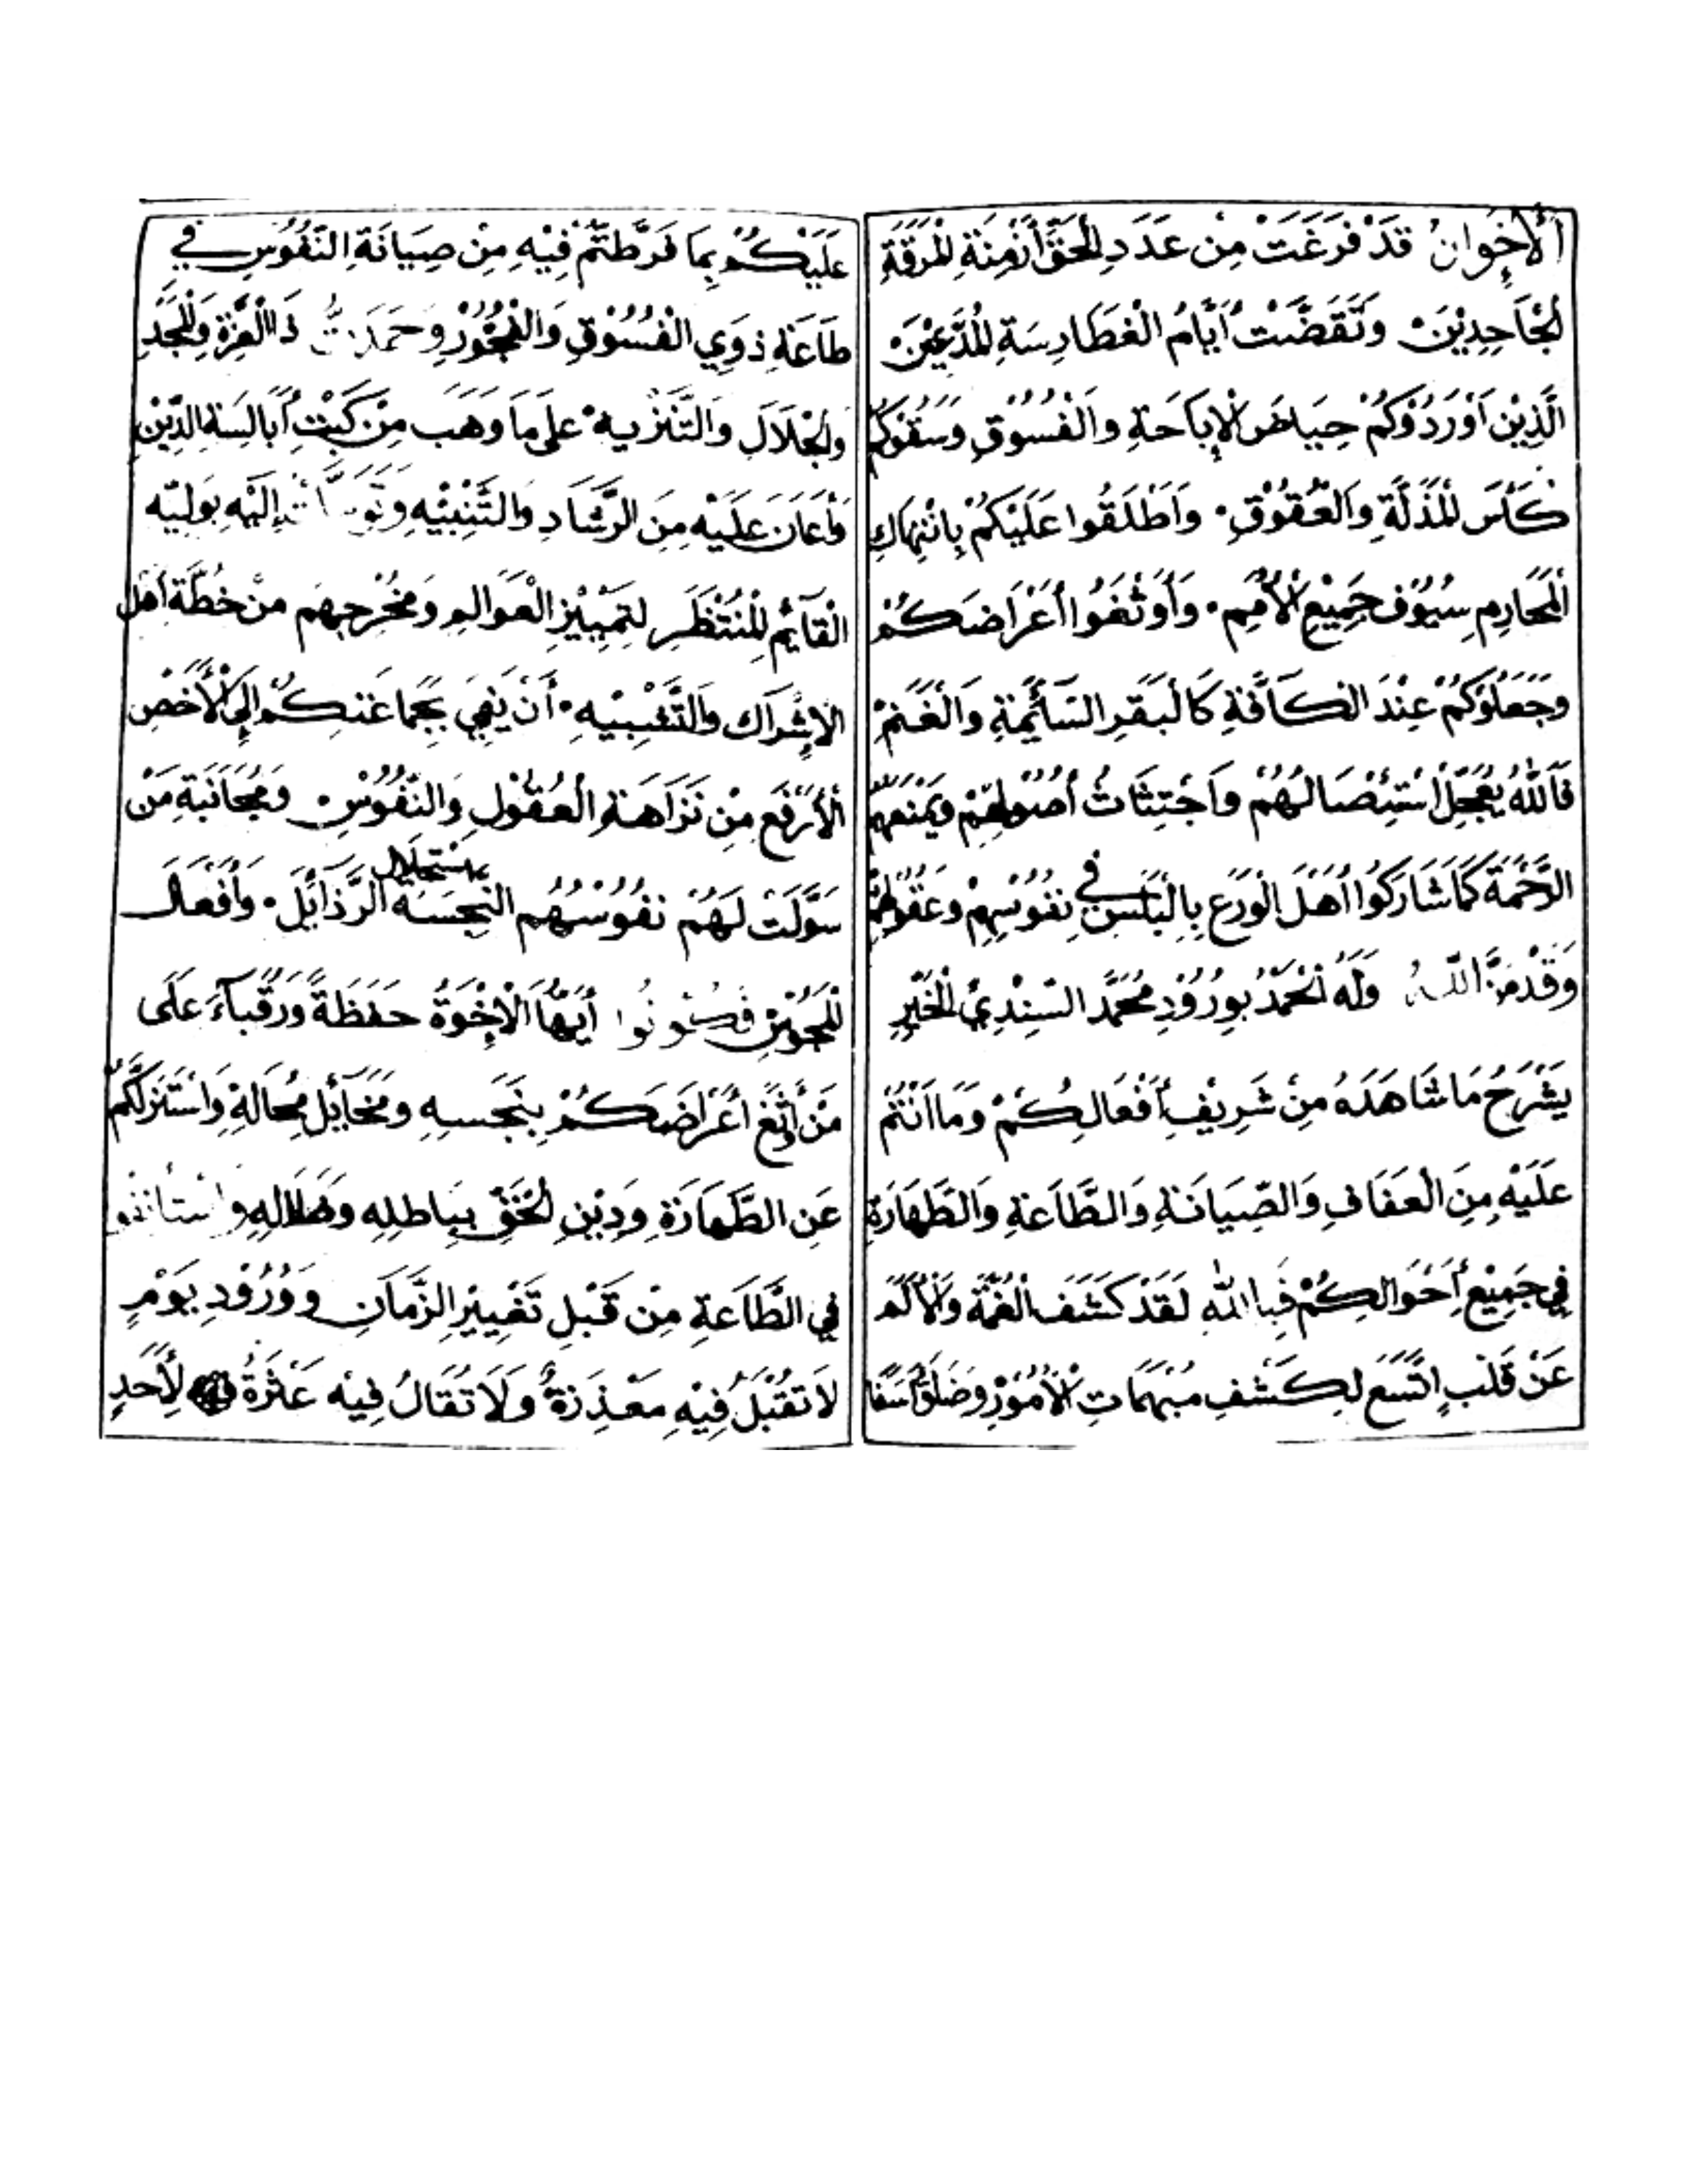 الْإِخْوَانُ قَدْ فَرَغَتْ مِنْ عَدَدِ الْحَقِّ أَزْمِنَةِ الْمَرَقَةِ
الْجَاحِدِيْنَ وَتَقَضَّتْ أَيَّامُ الْغَطَارِسَةِ الْمُدَّعِيْنَ
الَّذِيْنَ أَوْرَدُوْكُمْ حِيَاضَ الْإِبَاحَةِ وَالْفُسُوْقِ وَسَقَوْكُمْ
كَأْسَ الْمَذَلَّةِ وَالْعُقُوْقِ. وَأَطْلَقُوا عَلَيْكُمْ بِانْتِهَاكِ
الْمَحَارِمِ سِيُوْفَ جَمِيْعِ الْأُمَمِ. وَأَوْثَغُوا أَعْرَاضَكُمْ
وَجَعَلُوْكُمْ عِنْدَ الْكَآفَّةِ كَالْبَقَرِ السَّآئِمَةِ وَالْغَنَمْ
فَاللهُ يُعَجِّلُ اسْتِئْصَالَهُمْ وَاجْتِثَاثُ أُصُوْلِهِمْ وَيَمْنَعُهُمُ
الرَّحْمَةَ كَمَا شَارَكُوا أَهْلَ الْوَرَعِ بِالْبَأْسِ فِي نُفُوْسِهِمْ وَعُقُوْلِهِمْ
وَقَدْ مَنَّ اللهُ وَلَهُ الْحَمْدُ بِوُرُوْدِ مُحَمَّد السِّنْدِيُّ الْخَيِّرِ
يَشْرَحُ مَا شَاهَدَهُ مِنْ شَرِيْفِ أَفْعَالِكُمْ وَمَا أَنْتُمْ
عَلَيْهِ مِنَ الْعَفَافِ وَالصِّيَانَةِ وَالطَّاعَةِ وَالطَّهَارَةِ
فِي جَمِيْعِ أَحْوَالِكُمْ فَبِاللهِ لَقَدْ كَشَفَ الْغُمَّةَ وَالْأَلَمَ
عَنْ قَلْبٍ اتَّسَعَ لِكَشْفِ مُبْهَمَاتِ الْأُمُوْرِ وَضَلَّ أَسَفًا
عَلَيْكُمْ بِمَا فَرَّطْتُمْ فِيْهِ مِنْ صِيَانَةِ النُّفُوْسِ فِي
طَاعَةِ ذَوِي الْفُسُوْقِ وَالْفُجُوْرِ وَحَمَدْتُ ذَا الْعِزَّةِ وَالْمَجْدِ
وَالْجَلَالَ وَالتَّنْزِيهِ عَلَى مَا وَهَبَ مِنْ كَبْتِ أَبَالِسَةِ الدِّيْنِ
وَأَعَانَ عَلَيْهِ مِنَ الرَّشَادِ وَالتَّنْبِيْهِ وَتَوَسَّلْتُ إِلَيْهِ بِوَلِيِّهِ
الْقَآئِمُ الْمُنْتَظَرِ لِتَمْيِيْزِ الْعَوَالِمِ وَمُخْرِجِهِم مِنْ خُطَّةِ أَهْلِ
الْإِشْرَاكِ وَالتَّشْبِيْهِ. أَنْ يَفِيَ بِجَمَاعَتِكُمْ إِلَى الْأَخَصِّ
الْأَرْفَعِ مِنْ نَزَاهَةِ الْعُقُوْلِ وَالنُّفُوْسِ. وَمُجَانَبَةِ مَنْ
سَوَّلَتْ لَهُمْ نُفُوْسُهُم النَّجِسَةُ الرَّذَائِلَ. وَأَفْعَالَ
الْمَجُوْسِ فَكُوْنُوا أَيُّهَا الْإِخْوَةُ حَفَظَةً وَرُقَبَآءَ عَلَى
مَنْ أَثَغَ أَعْرَاضَكُمْ بِنَجَسِهِ وَمَخَآئِلِ مِحَالِهِ وَاسْتَزَلَّكُمْ
عَنِ الطَّهَارَةِ وَدِيْنِ الْحَقِّ بِبَاطِلِهِ وَضَلَالِهِ وَاسْتَأْنِفُوا
فِي الطَّاعَةِ مِنْ قَبْلِ تَغْيِيْرِ الزَّمَانِ وَوُرُوْدِ يَوْمٍ
لَا تُقْبَلُ فِيْهِ مَعْذِرَةٌ وَلَا تُقَالُ فِيْه عَثْرَةٌ لِأَحَدٍ